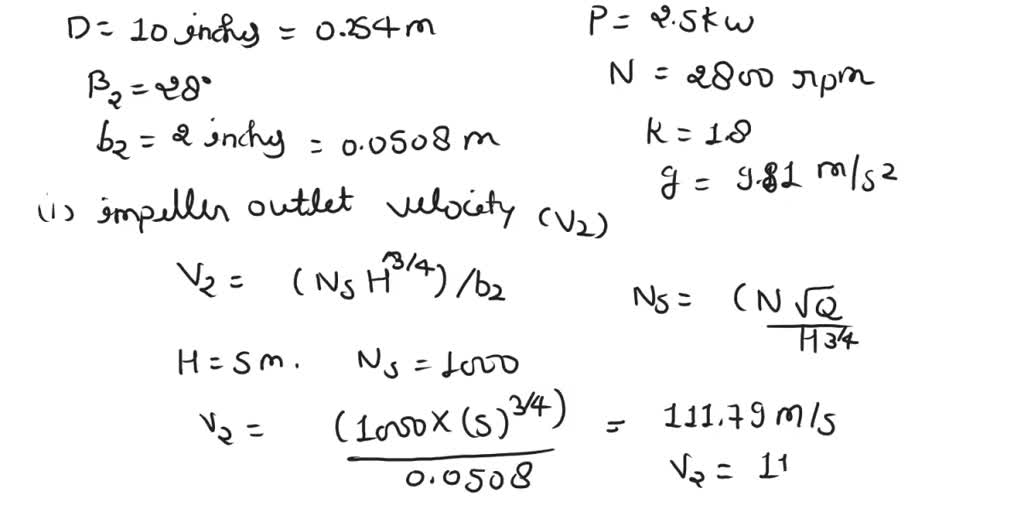 D = 10 inchy = 0.254 m
P = 2.5 kw
β₂ = 28°
N = 2800 rpm
b₂ = 2 inchy = 0.0508 m
K = 1.8
g = 9.81 m/s²
(1) impeller outlet velociety (V₂)
V₂ = (Ns H^3/4) / b₂
Ns = (N √Q / H 3/4
H = 5 m. Ns = 1000
V₂ = (1000 × (5)^3/4) / 0.0508 = 111.79 m/s
V₂ = 11